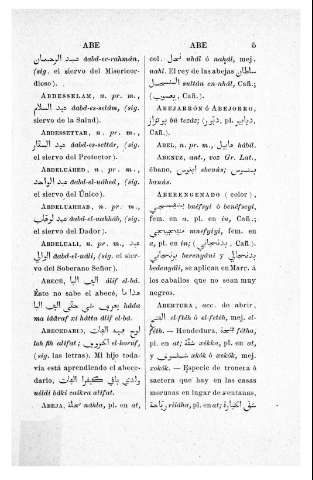 ABE
ABE 5
عبد الرحيمان dabd-er-rahmán,
(sig. el siervo del Misericor-
dioso).
ABDESSELAM, n. pr. m.,
عبد السلام dabd-es-selám, (sig.
siervo de la Salud).
ABDESSETTAR, n. pr. m.,
عبد الستار dabd-es-settár, (sig.
el siervo del Protector).
ABDELUÁHED, n. pr. m.,
عبد الواحد dabd-el-uáhed, (sig.
el siervo del Único).
ABDELUAHHAB, n. pr. m.,
dabd-el-uahháb, (sig.
el siervo del Dador).
ABDELUALI, n. pr. m., عبد
الوالي dabd-el-uáli, (sig. el sier-
vo del Soberano Señor).
ABECÉ, الف البا álif el-bá.
Éste no sabe el abecé, هذا ما
يعرف شي حتّى الف البا háda
ma idáraf xi hátta álif el-bá.
ABECEDARIO, لوح فيه
lah fih alifat;
(sig. las letras). Mi hijo toda-
vía está aprendiendo el abece-
dario,
ulddi báki caikra alífat.
ABEJA, نحلة náhla, pl. en at,
col. نحل nhál ó nahál, mej.
nahl. El rey de las abejas سلطان
النحل sultán en-nhál, Cañ.;
(يعسوب, Cañ.).
ABEJARRÓN Ó ABEJORRO,
bú tenîz; (دبّور, pl. دبابير,
Cañ.).
ABEL, n. pr. m., هابيل hábil.
ABENUZ, ant., voz Gr. Lat.,
ébano, ebenús;
henús.
ABERENGENADO (color),
bedfesyi ó benéfseyi,
fem. en a, pl. en in, Cañ.;
mnefyiyi, fem. en
a, pl. en in; (بدنجاني, Cañ.).
berenyáni y
bedenyáli, se aplican en Marr. á
los caballos que no sean muy
negros.
ABERTURA, acc. de abrir,
الفتح el-fteh ó el-feth, mej. el-
fteh. — Hendedura, فتحة fétha,
pl. en at; شقّة xékka, pl. en at,
y xkók ó xekók, mej.
xokók. — Especie de tronera ó
saetera que hay en las casas
morunas en lugar de ventanas,
riiáha, pl. en at;